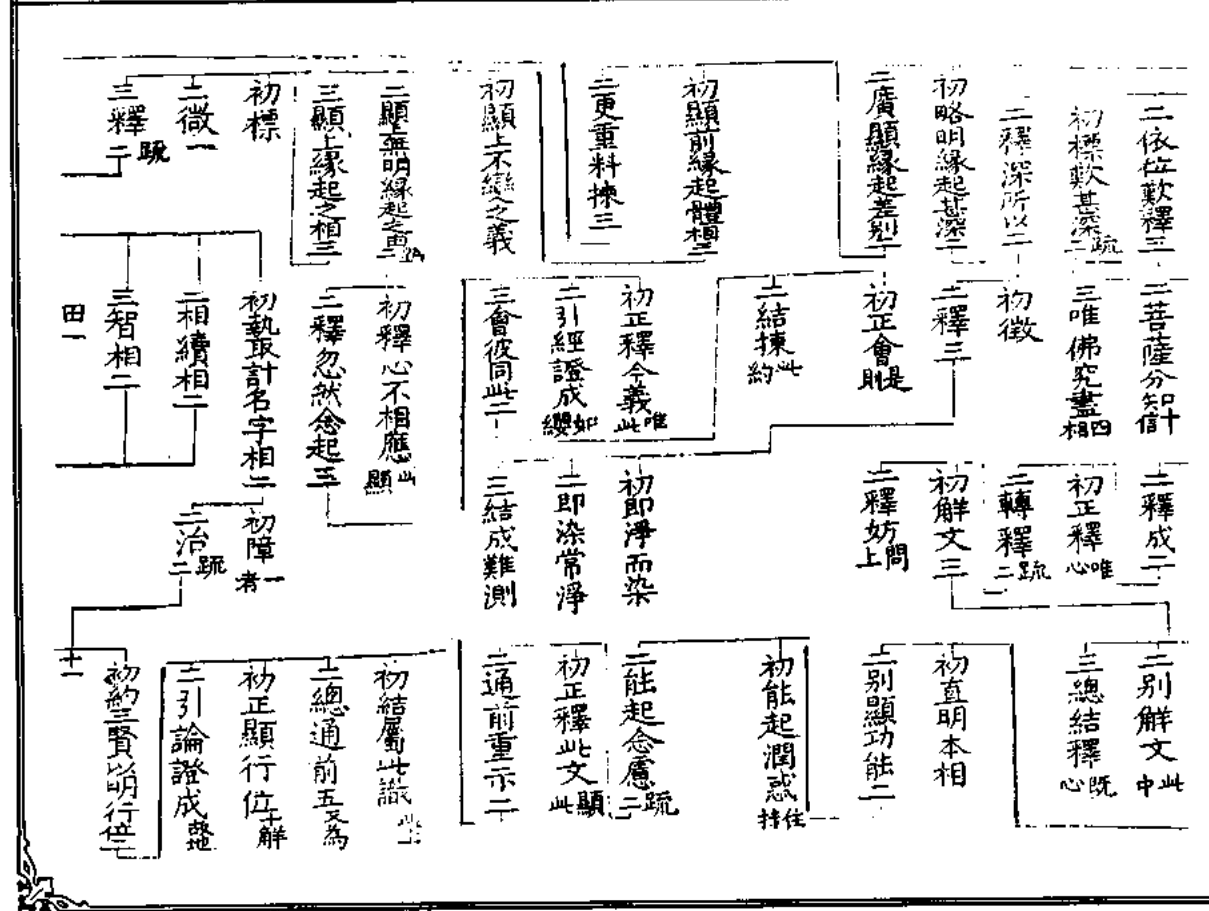 二依位歎釋三
初標歎甚深二疏
二釋深所以二
初略明緣起甚深二
二廣顯緣起差別二
初顯前緣起體相三
二更重料揀三
初顯上不變之義
二顯無明緣起之由二
三顯上緣起之相三
初標
二徵一
三釋二疏
二菩薩分知十信
三唯佛究盡四相
初徵
二釋三
初正會是則
二結揀此約
初正釋今義唯此
二引經證成如纓
三會彼同此二
初釋心不相應此顯
二釋忽然念起三
初執取計名字相二
二相續相二
三智相二
田一
二釋成二
初正釋唯心
二轉釋二疏
初解文三
二釋妨問上
初即淨而染
二即染常淨
三結成難測
初障一者
二治二疏
二別解文此中
三總結釋既心
初直明本相
二別顯功能二
初能起潤惑住持
二能起念慮二疏
初正釋此文顯此
二通前重示二
初結屬此識
二總通前五又為
初正顯行位十解
二引論證成故地
初約三賢以明行位二
十一